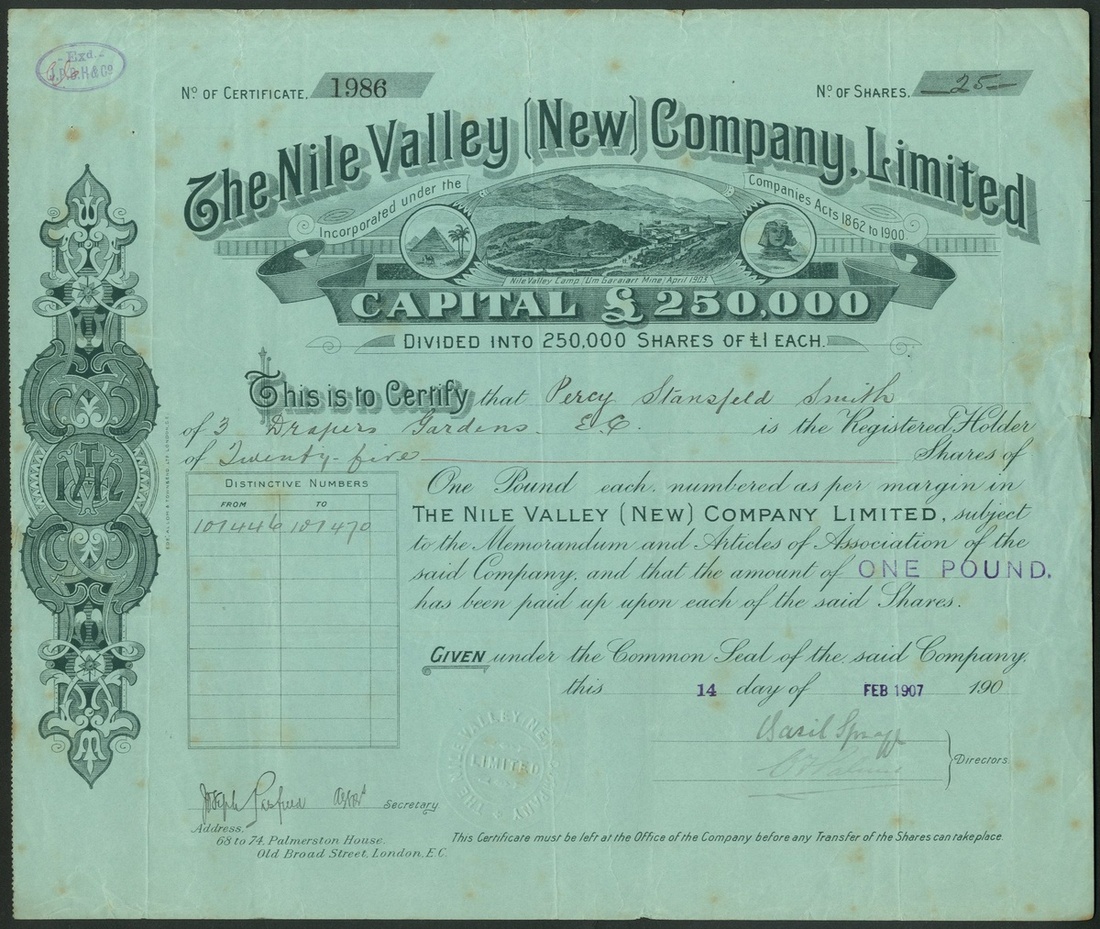 Exd.
Nº OF CERTIFICATE. 1986
Nº OF SHARES. 25
The Nile Valley (New) Company, Limited
Incorporated under the Companies Acts 1862 to 1900
Nile Valley Camp (Um Garaiart Mine) April 1903
CAPITAL £250,000
DIVIDED INTO 250,000 SHARES OF £1 EACH.
This is to Certify that Percy Stansfeld Smith
of 3 Drapers Gardens E.C. is the Registered Holder
of Twenty-five Shares of
One Pound each. numbered as per margin in
THE NILE VALLEY (NEW) COMPANY LIMITED, subject
to the Memorandum and Articles of Association of the
said Company, and that the amount of ONE POUND.
has been paid up upon each of the said Shares.
DISTINCTIVE NUMBERS
FROM TO
101446 101470
GIVEN under the Common Seal of the said Company,
this 14 day of FEB 1907 190
THE NILE VALLEY (NEW) COMPANY
LIMITED
Directors
Joseph Secretary
Address,
68 to 74, Palmerston House,
Old Broad Street, London, E.C.
This Certificate must be left at the Office of the Company before any Transfer of the Shares can take place.